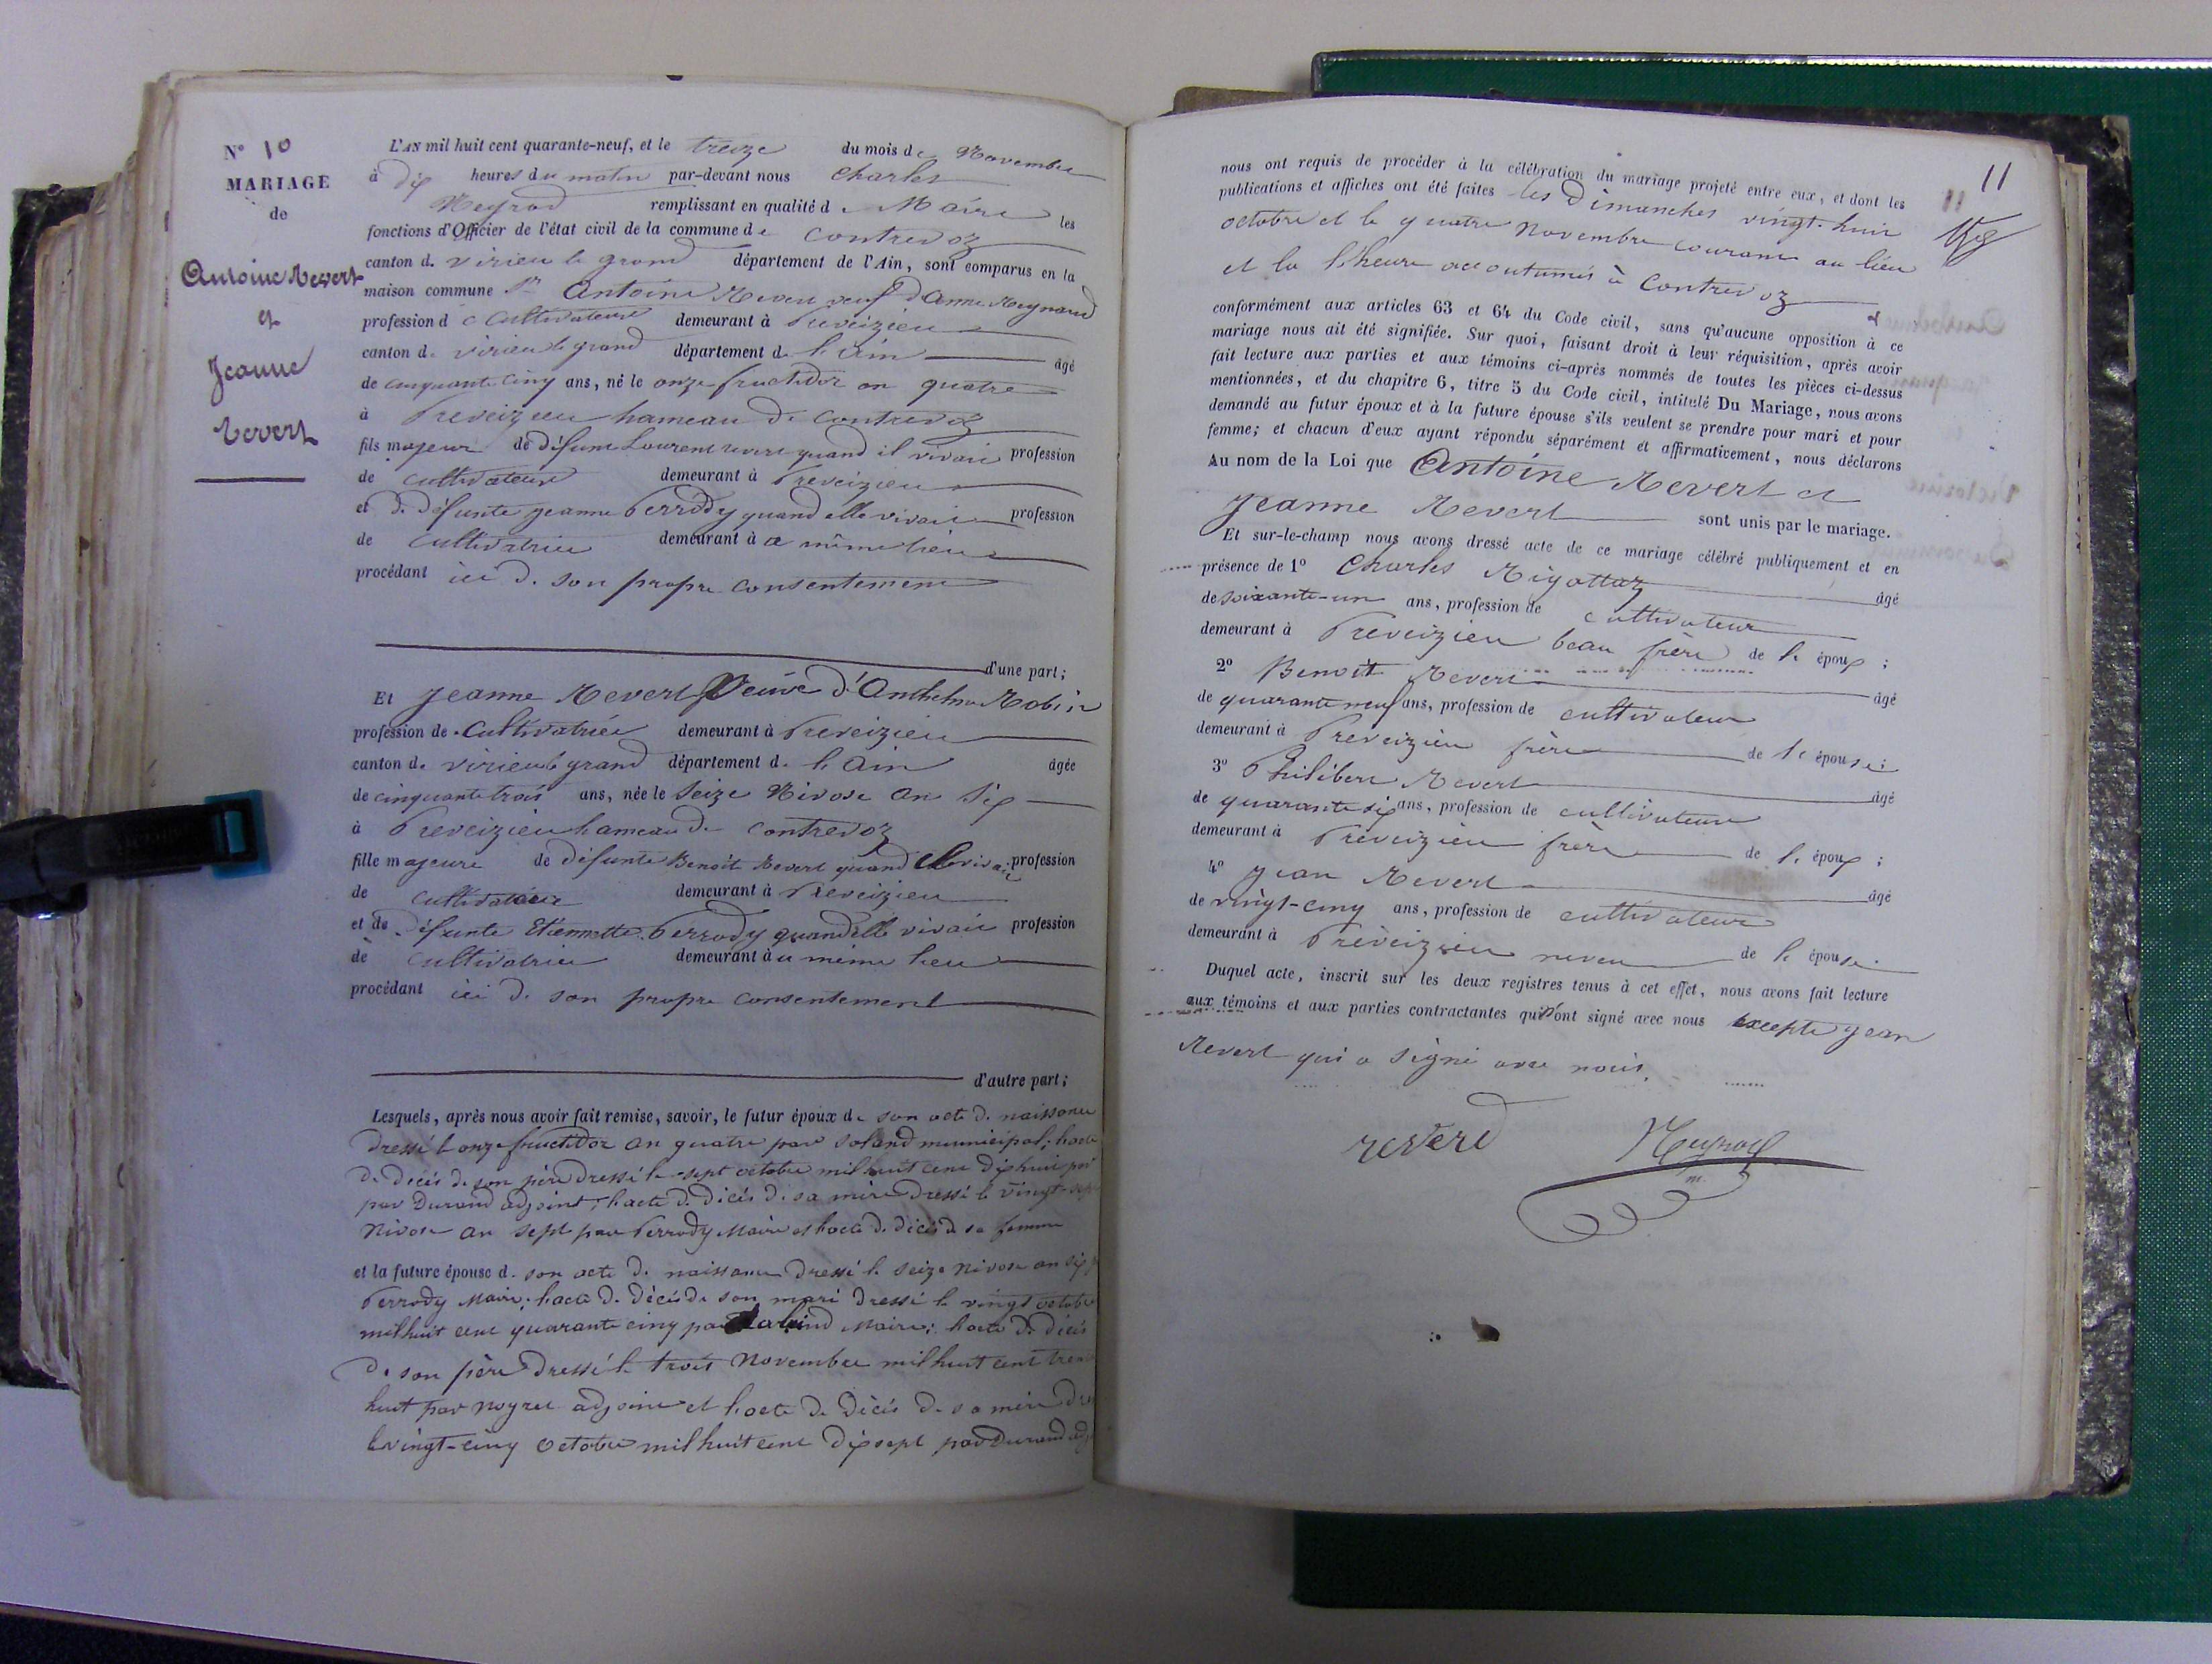 N° 10
MARIAGE
de
Antoine Revert
et
Jeanne
Revert
L'AN mil huit cent quarante-neuf, et le treize du mois de Novembre
à dix heures du matin par-devant nous Charles
Neyrod remplissant en qualité de Maire les
fonctions d'Officier de l'état civil de la commune de contrevoz
canton de virieu le grand département de l'Ain, sont comparus en la
maison commune 1° Antoine Revert veuf d'Anne Meynand
profession de Cultivateur demeurant à Preveizieu
canton de virieu le grand département de l'ain âgé
de cinquante cinq ans, né le onze fructidor an quatre
à Preveizieu hameau de contrevoz
fils majeur de défunt Laurent revert quand il vivait profession
de cultivateur demeurant à Preveizieu
et de défunte jeanne Perrody quand elle vivait profession
de cultivatrice demeurant à ce même lieu
procédant ici de son propre consentement
d'une part;
Et Jeanne Revert Veuve d'Anthelme Robin
profession de Cultivatrice demeurant à Preveizieu
canton de virieu le grand département de l'ain âgée
de cinquante trois ans, née le Seize Nivose an Six
à Preveizieu hameau de contrevoz
fille majeure de défunte Benoit Revert quand il vivait profession
de cultivateur demeurant à Preveizieu
et de défunte Etiennette Perrody quand elle vivait profession
de cultivatrice demeurant à u meme lieu
procédant ici de son propre consentement
d'autre part;
Lesquels, après nous avoir fait remise, savoir, le futur époux de son acte de naissance
dressé le onze fructidor an quatre par Soland municipal; l'acte
de décès de son père dressé le sept octobre mil huit cent dix huit par
par Durand adjoint; l'acte de décès de sa mère dressé le vingt-sept
Nivose an sept par Perrody Maire et l'acte de décès de sa femme
et la future épouse de son acte de naissance dressé le seize nivose an six
Perrody Maire; l'acte de décès de son mari dressé le vingt octobre
mil huit cent quarante cinq par Maire; l'acte de décès
de son père dressé le trois Novembre mil huit cent trente
huit par adjoint et l'acte de décès de sa mère
le vingt-cinq octobre mil huit cent dix sept par Durand adj
11
nous ont requis de procéder à la célébration du mariage projeté entre eux, et dont les
publications et affiches ont été faites les Dimanches vingt-huit
octobre et le quatre novembre courant au lieu
et la l'heure accoutumés à Contrevoz
conformément aux articles 63 et 64 du Code civil, sans qu'aucune opposition à ce
mariage nous ait été signifiée. Sur quoi, faisant droit à leur réquisition, après avoir
fait lecture aux parties et aux témoins ci-après nommés de toutes les pièces ci-dessus
mentionnées, et du chapitre 6, titre 5 du Code civil, intitulé Du Mariage, nous avons
demandé au futur époux et à la future épouse s'ils veulent se prendre pour mari et pour
femme; et chacun d'eux ayant répondu séparément et affirmativement, nous déclarons
Au nom de la Loi que Antoine Revert et
Jeanne Revert sont unis par le mariage.
Et sur-le-champ nous avons dressé acte de ce mariage célébré publiquement et en
présence de 1° Charles Rigottaz âgé
de soixante-un ans, profession de cultivateur
demeurant à Preveizieu beau frère de l'époux ;
2° Benoit Revert âgé
de quarante neuf ans, profession de cultivateur
demeurant à Preveizieu frère de l'épouse;
3° Philibert Revert âgé
de quarante six ans, profession de cultivateur
demeurant à Preveizieu frère de l'époux ;
4° Jean Revert âgé
de vingt-cinq ans, profession de cultivateur
demeurant à Preveizieu neveu de l'épouse.
Duquel acte, inscrit sur les deux registres tenus à cet effet, nous avons fait lecture
aux témoins et aux parties contractantes qui n'ont signé avec nous excepté jean
Revert qui a signé avec nous.
revered
Neyrod
m.